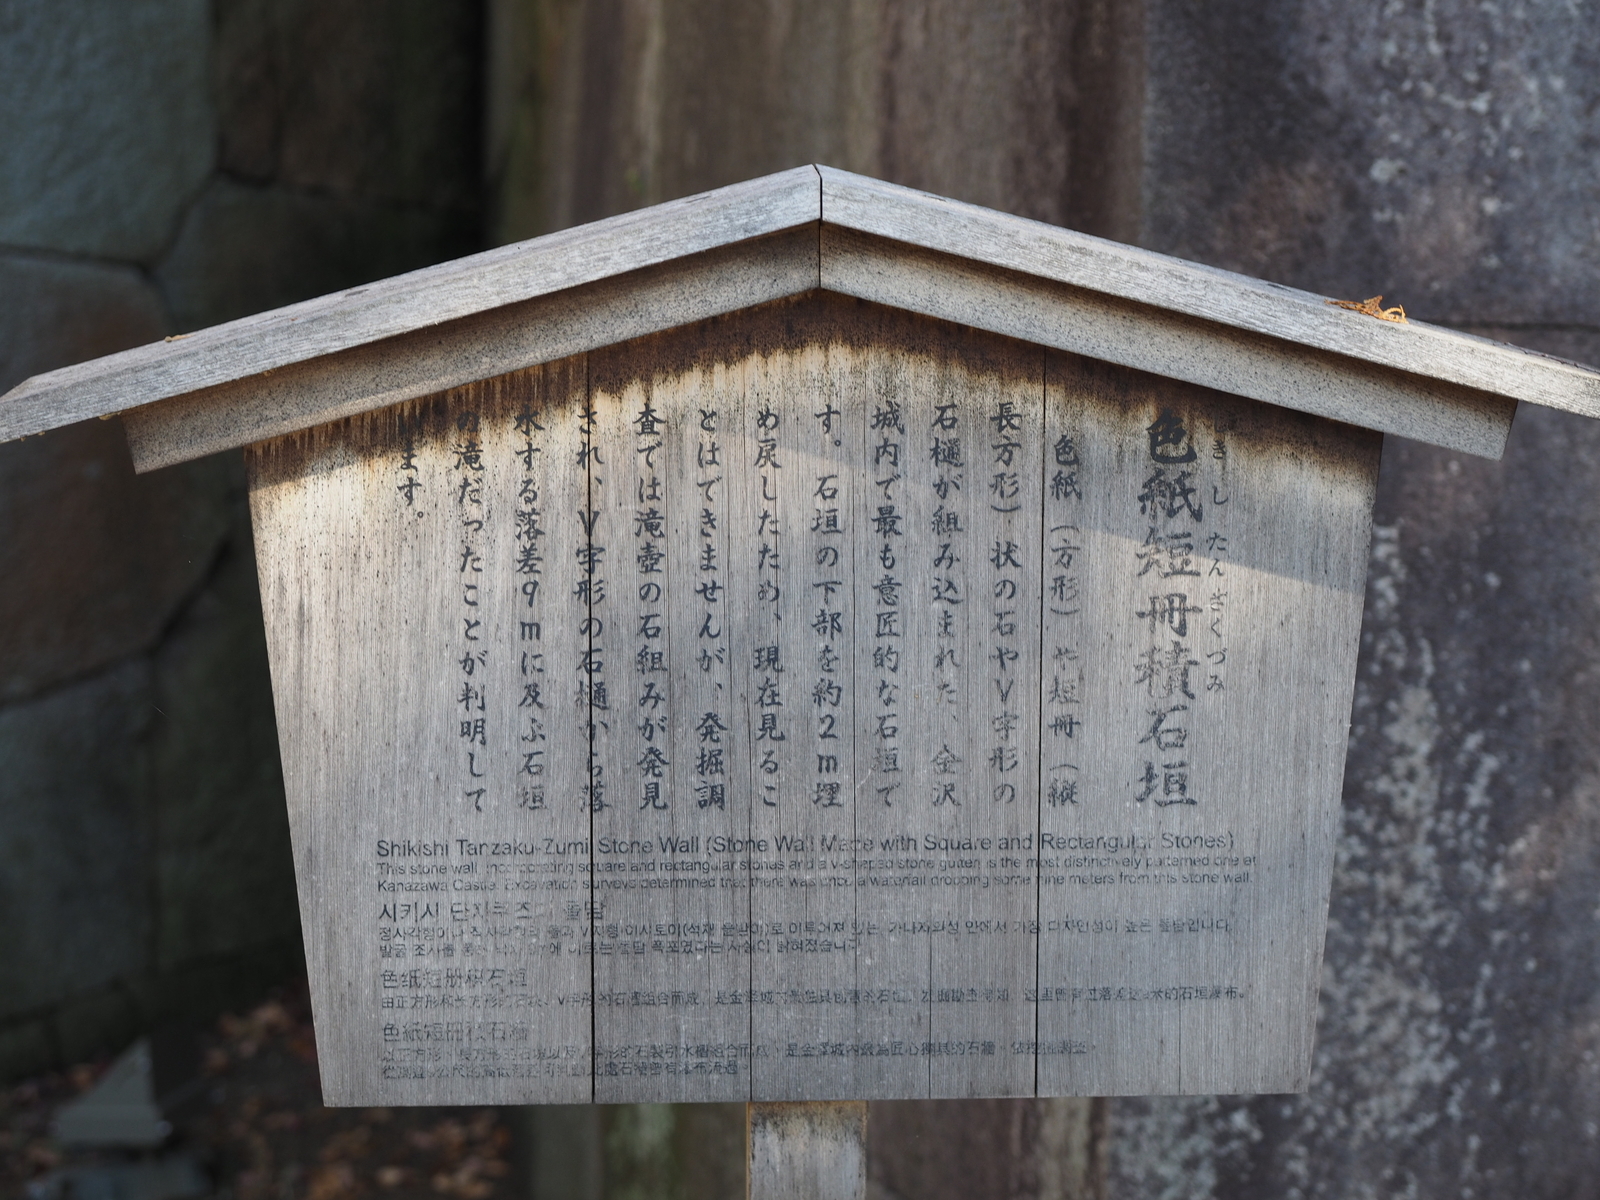 色紙短冊積石垣
しきし たんざくづみ
色紙（方形）や短冊（縦
長方形）状の石やV字形の
石樋が組み込まれた、金沢
城内で最も意匠的な石垣で
す。石垣の下部を約2m埋
め戻したため、現在見るこ
とはできませんが、発掘調
査では滝壺の石組みが発見
され、V字形の石樋から落
水する落差9mに及ぶ石垣
の滝だったことが判明して
います。
Shikishi Tanzaku-Zumi Stone Wall (Stone Wall Made with Square and Rectangular Stones)
This stone wall incorporating square and rectangular stones and a v-shaped stone gutter is the most distinctively patterned one at
Kanazawa Castle. Excavation surveys determined that there was once a waterfall dropping some nine meters from this stone wall.
시키시 단자쿠즈미 돌담
이루어져 있는 가나자와성 안에서 가장 디자인성이 높은 돌담입니다.
발굴 조사를 돌담 폭포였다는 사실이 밝혀졌습니다
色纸短册积石垣
色紙短冊積石牆